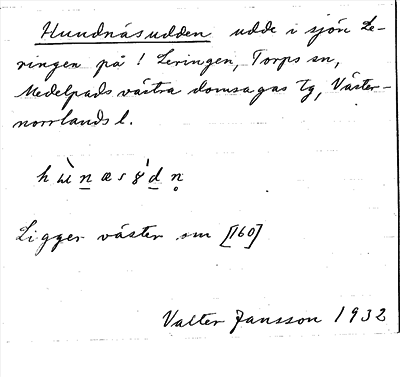 Hundnäsudden udde i sjön Le-
ringen på ! Leringen, Torps sn,
Medelpads västra domsagas tg, Väster-
norrlands l.
Ligger väster om [160]
Valter Jansson 1932